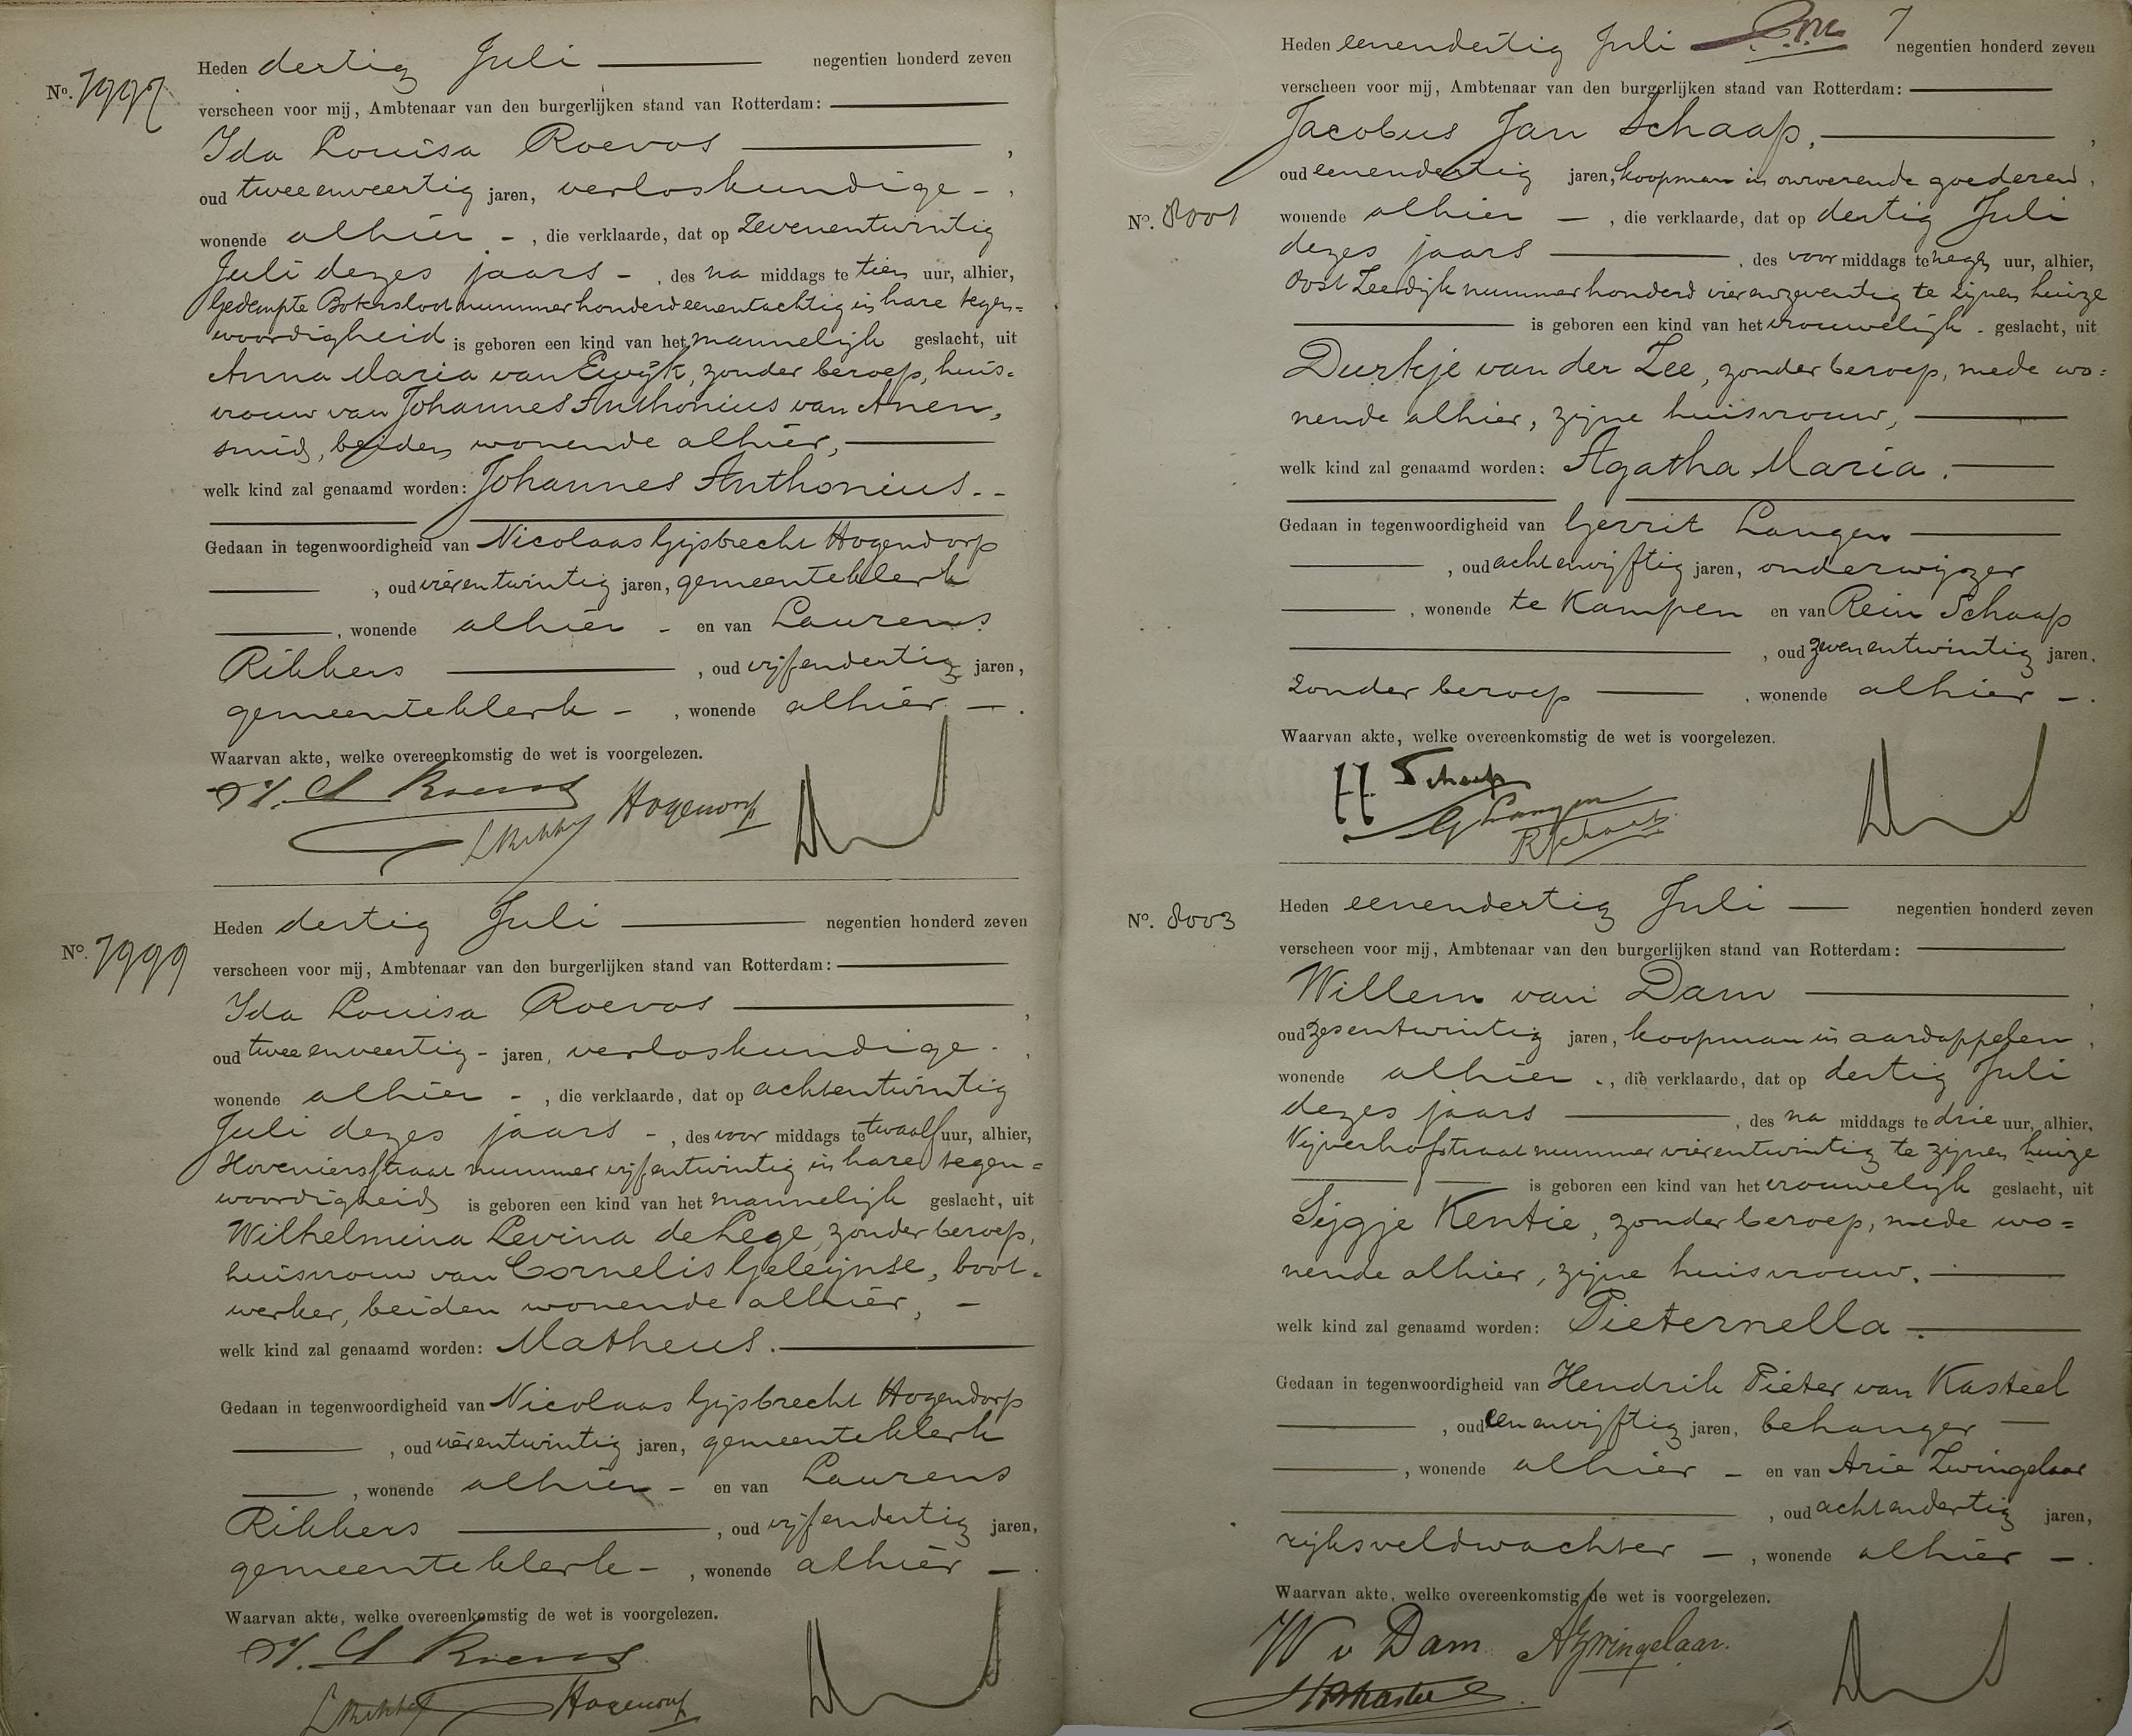 Heden dertig Juli negentien honderd zeven
No. 7997
verscheen voor mij, Ambtenaar van den burgerlijken stand van Rotterdam:
Ida Louisa Roevos ,
oud tweeenveertig jaren, verloskundige - ,
wonende alhier - , die verklaarde, dat op zevenentwintig
Juli dezes jaars - , des na middags te tien uur, alhier,
Gedempte Botersloot nummer honderdeenentachtig in hare tegen=
woordigheid is geboren een kind van het mannelijk geslacht, uit
Anna Maria van Ewijk, zonder beroep, huis=
vrouw van Johannes Anthonius van Anen,
smid, beiden wonende alhier,
welk kind zal genaamd worden: Johannes Anthonius. -
Gedaan in tegenwoordigheid van Nicolaas Gijsbrecht Hogendorp
, oud vierentwintig jaren, gemeenteklerk
, wonende alhier - en van Laurens
Ribbers , oud vijfendertig jaren,
gemeenteklerk - , wonende alhier - .
Waarvan akte, welke overeenkomstig de wet is voorgelezen.
Roevos
Hogendorp
Heden dertig Juli negentien honderd zeven
No. 7999
verscheen voor mij, Ambtenaar van den burgerlijken stand van Rotterdam:
Ida Louisa Roevos ,
oud tweeenveertig - jaren, verloskundige - ,
wonende alhier - , die verklaarde, dat op achtentwintig
Juli dezes jaars - , des voor middags te twaalf uur, alhier,
Hoveniersstraat nummer vijfentwintig in hare tegen=
woordigheid is geboren een kind van het mannelijk geslacht, uit
Wilhelmina Levina de Lege, zonder beroep,
huisvrouw van Cornelis Geleijnse, boot=
werker, beiden wonende alhier, -
welk kind zal genaamd worden: Matheus.
Gedaan in tegenwoordigheid van Nicolaas Gijsbrecht Hogendorp
, oud vierentwintig jaren, gemeenteklerk
, wonende alhier - en van Laurens
Ribbers , oud vijfendertig jaren,
gemeenteklerk - , wonende alhier - .
Waarvan akte, welke overeenkomstig de wet is voorgelezen.
Roevos
Hogendorp
Heden eenendertig Juli 7 negentien honderd zeven
verscheen voor mij, Ambtenaar van den burgerlijken stand van Rotterdam:
Jacobus Jan Schaap, ,
oud eenendertig jaren, koopman in onroerende goederen,
No. 8001
wonende alhier - , die verklaarde, dat op dertig Juli
dezes jaars , des voor middags te negen uur, alhier,
Oost Zeedijk nummer honderd vierenzeventig te zijnen huize
is geboren een kind van het vrouwelijk - geslacht, uit
Durkje van der Zee, zonder beroep, mede wo=
nende alhier, zijne huisvrouw,
welk kind zal genaamd worden: Agatha Maria.
Gedaan in tegenwoordigheid van Gerrit Langen
, oud achtenvijftig jaren, onderwijzer
, wonende te Kampen en van Rein Schaap
, oud zevenentwintig jaren,
zonder beroep , wonende alhier - .
Waarvan akte, welke overeenkomstig de wet is voorgelezen.
Schaap
G Langen
R Schaap
Heden eenendertig Juli negentien honderd zeven
No. 8003
verscheen voor mij, Ambtenaar van den burgerlijken stand van Rotterdam:
Willem van Dam ,
oud zesentwintig jaren, koopman in aardappelen,
wonende alhier - , die verklaarde, dat op dertig Juli
dezes jaars , des na middags te drie uur, alhier,
Nijverhofstraat nummer vierentwintig te zijnen huize
is geboren een kind van het vrouwelijk geslacht, uit
Sijgje Kentie, zonder beroep, mede wo=
nende alhier, zijne huisvrouw.
welk kind zal genaamd worden: Pieternella.
Gedaan in tegenwoordigheid van Hendrik Pieter van Kasteel
, oud eenenvijftig jaren, behanger
, wonende alhier - en van Arie Zwingelaar
, oud achtendertig jaren,
rijksveldwachter - , wonende alhier - .
Waarvan akte, welke overeenkomstig de wet is voorgelezen.
W v Dam A Zwingelaar.